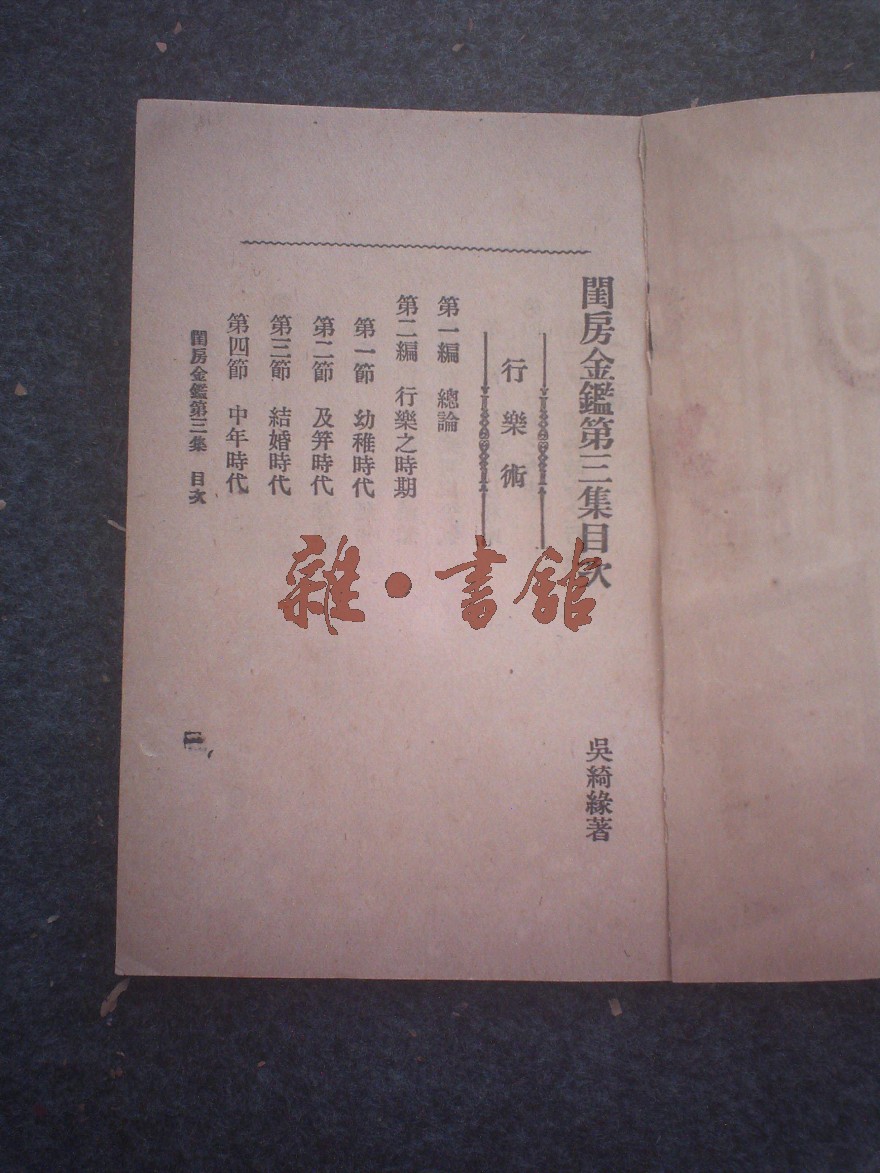 閨房金鑑第三集目次
吳綺緣著
行樂術
第一編 總論
第二編 行樂之時期
第一節 幼稚時代
第二節 及笄時代
第三節 結婚時代
第四節 中年時代
閨房金鑑第三集 目次
雜·書館